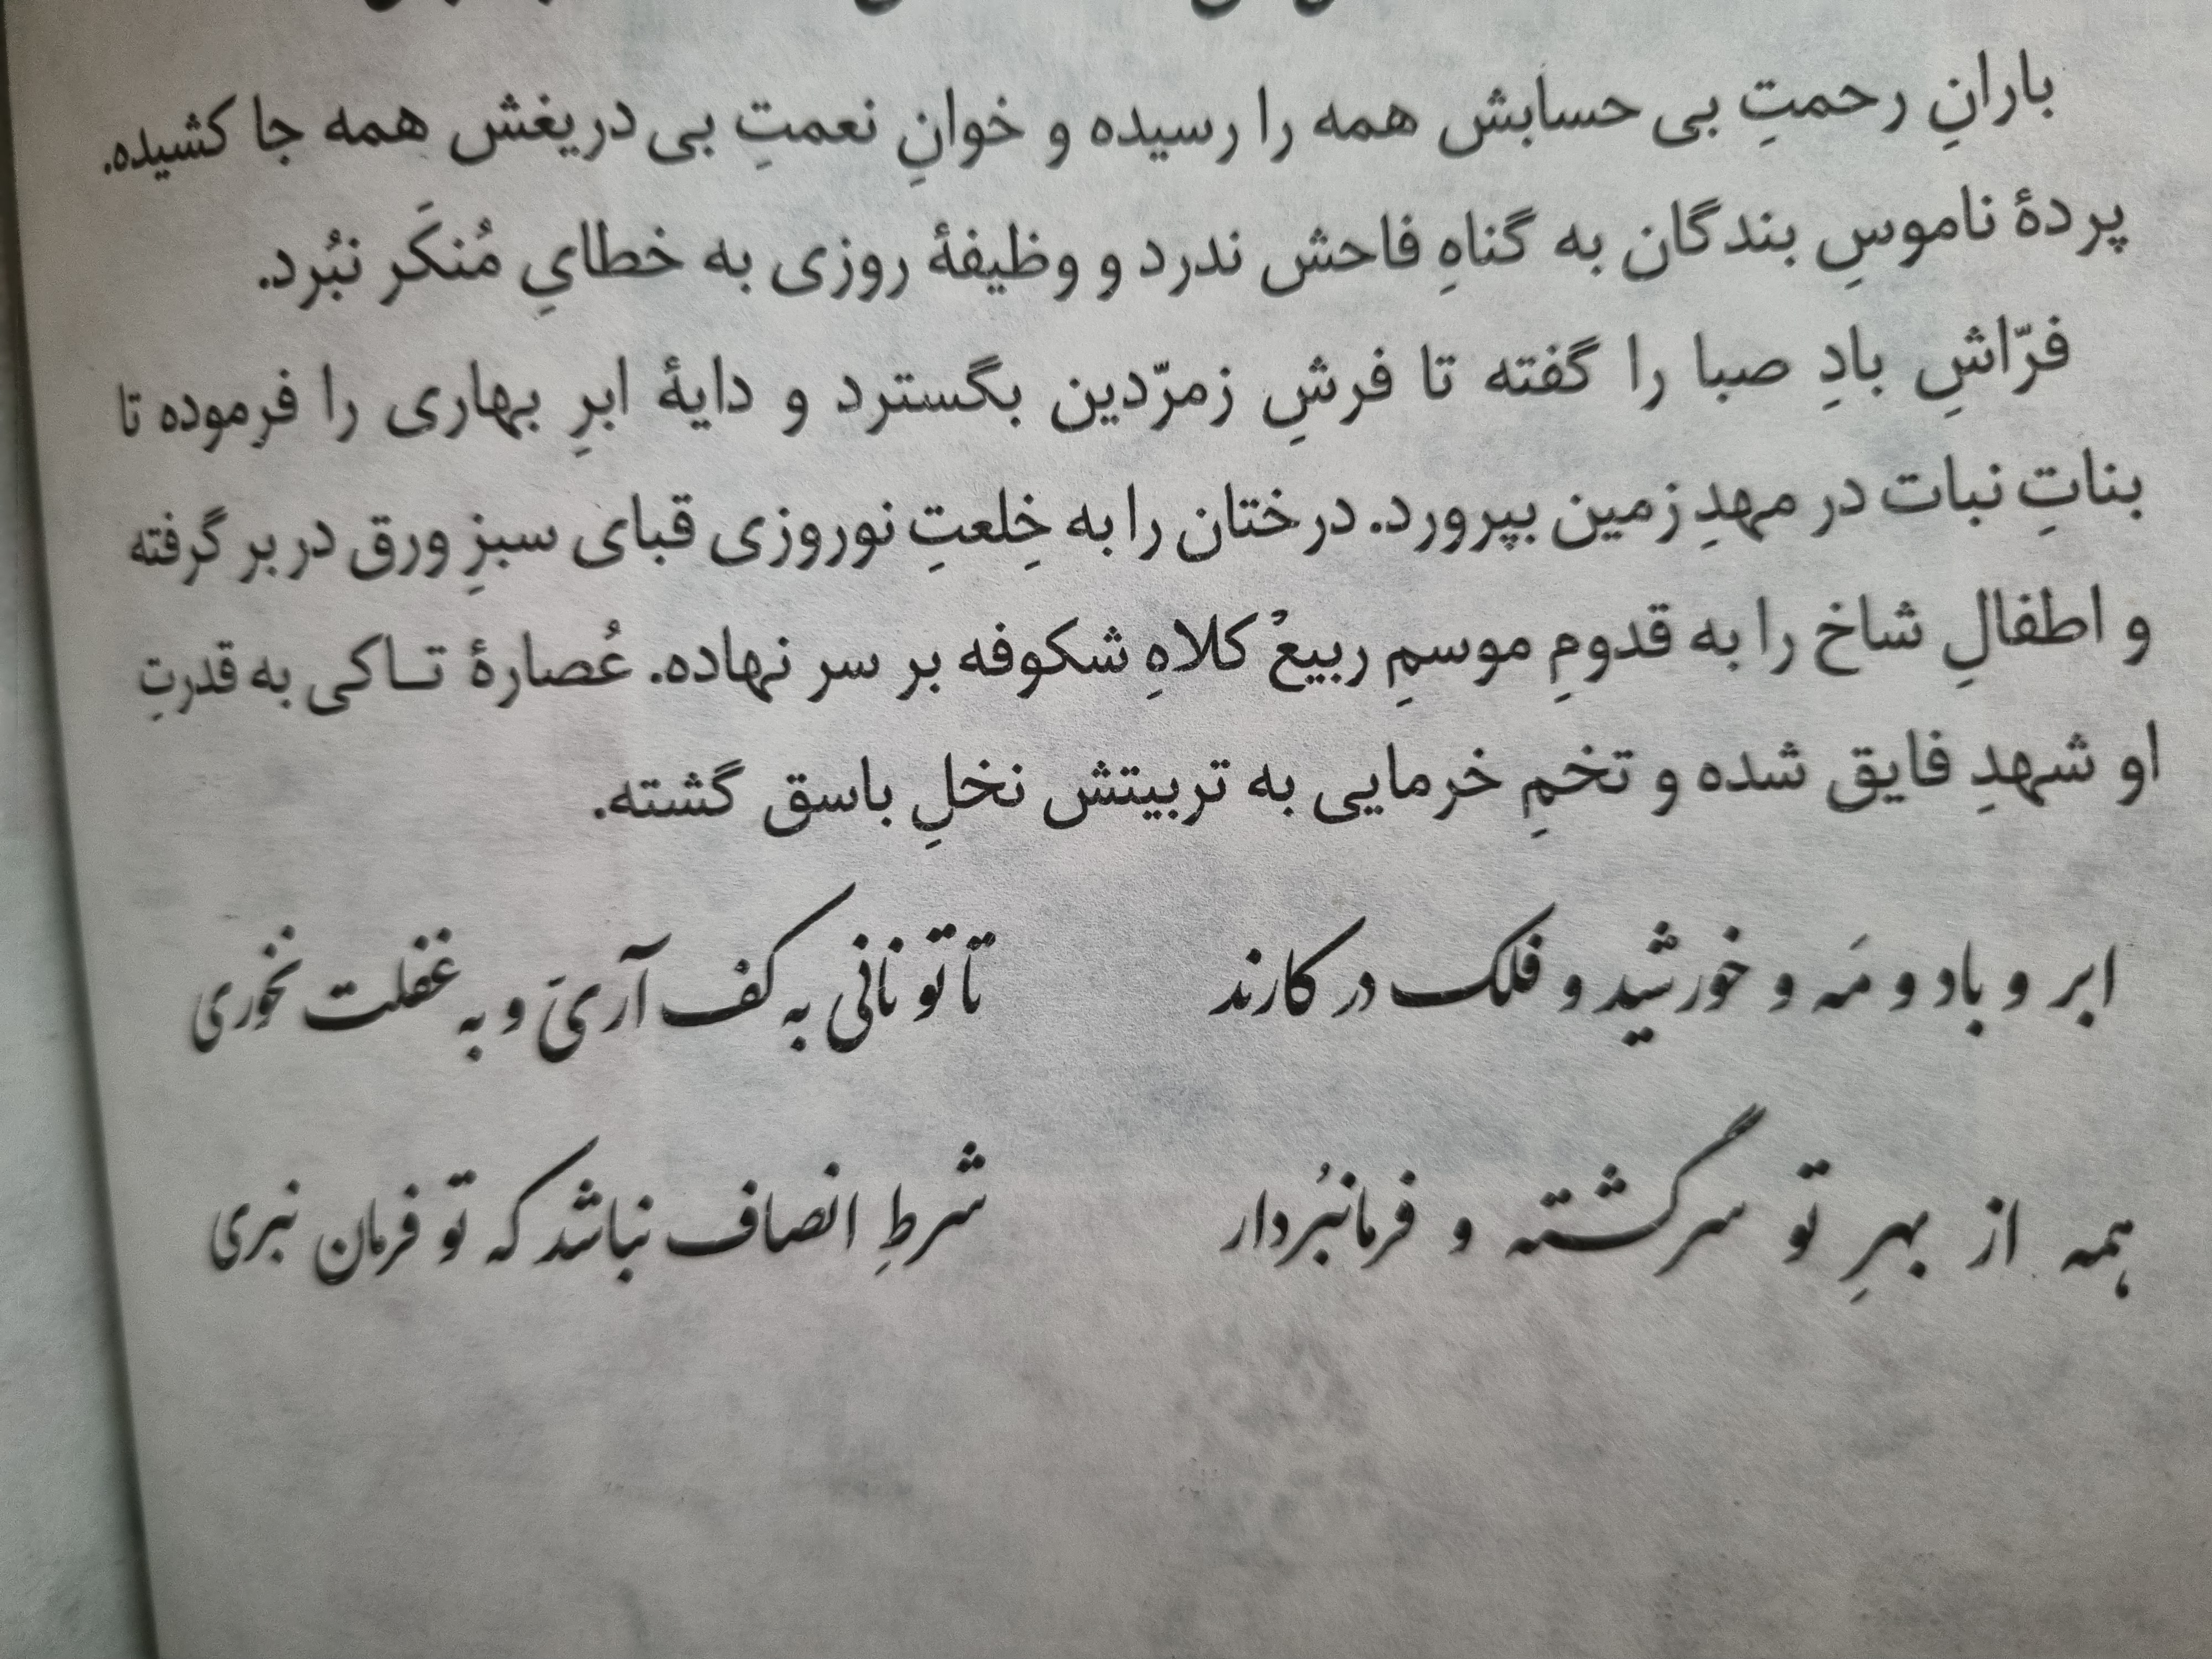 بارانِ رحمتِ بی حسابش همه را رسیده و خوانِ نعمتِ بی دریغش همه جا کشیده.
پردهٔ ناموسِ بندگان به گناهِ فاحش ندرد و وظیفهٔ روزی به خطایِ مُنکَر نبُرد.
فرّاشِ بادِ صبا را گفته تا فرشِ زمرّدین بگسترد و دایهٔ ابرِ بهاری را فرموده تا
بناتِ نبات در مهدِ زمین بپرورد. درختان را به خِلعتِ نوروزی قبای سبزِ ورق در بر گرفته
و اطفالِ شاخ را به قدومِ موسمِ ربیع کُلاهِ شکوفه بر سر نهاده. عُصارهٔ تاکی به قدرتِ
او شهدِ فایق شده و تخمِ خرمایی به تربیتش نخلِ باسق گشته.
ابر و باد و مَه و خورشید و فلک در کارند تا تو نانی به کف آریّ و به غفلت نخوری
همه از بهرِ تو سرگشته و فرمانبُردار شرطِ انصاف نباشد که تو فرمان نبری